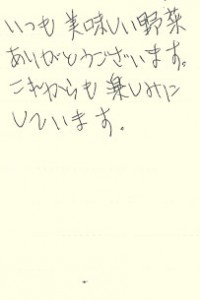 いつも美味しい野菜
ありがとうございます。
これからも楽しみに
しています。